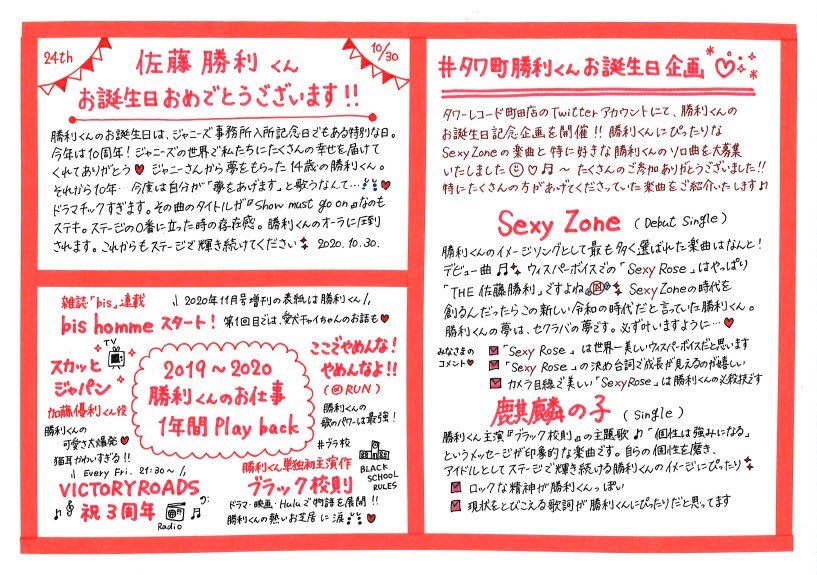 24th
佐藤 勝利 くん
10/30
お誕生日おめでとうございます!!
勝利くんのお誕生日は、ジャニーズ事務所入所記念日でもある特別な日。
今年は10周年！ジャニーズの世界で私たちにたくさんの幸せを届けて
くれてありがとう♥ ジャニーさんから夢をもらった14歳の勝利くん。
それから10年…今度は自分が「夢をあげます」と歌うなんて…♥
ドラマチックすぎます。その曲のタイトルが『Show must go on』なのも
ステキ。ステージの0番に立った時の存在感。勝利くんのオーラに圧倒
されます。これからもステージで輝き続けてください 2020.10.30.
雑誌「bis」連載
\\ 2020年11月号増刊の表紙は勝利くん //
bis homme スタート！
第1回目では、愛犬チャイちゃんのお話も♥
TV
スカッと
ジャパン
加藤優利くん役
勝利くんの
可愛さ大爆発♥
猫耳かわいすぎる!!
2019〜2020
勝利くんのお仕事
1年間 Play back
ここでやめんな！
やめんなよ!!
(㊝RUN)
勝利くんの
歌のパワーは最強！
\\ Every Fri. 21:30〜 /
VICTORY ROADS
祝3周年
Radio
#ブラ校
勝利くん単独初主演作
ブラック校則
BLACK
SCHOOL
RULES
ドラマ・映画・Huluで物語を展開!!
勝利くんの熱いお芝居に涙♥
#タワ町勝利くんお誕生日企画♡
タワーレコード町田店のTwitterアカウントにて、勝利くんの
お誕生日記念企画を開催!! 勝利くんにぴったりな
Sexy Zoneの楽曲と特に好きな勝利くんのソロ曲を大募集
いたしました☺♡♬〜 たくさんのご参加ありがとうございました!!
特にたくさんの方があげてくださっていた楽曲をご紹介いたします♪
Sexy Zone (Debut Single)
勝利くんのイメージソングとして最も多く選ばれた楽曲はなんと！
デビュー曲♬ ウィスパーボイスでの「Sexy Rose」はやっぱり
「THE 佐藤勝利」ですよね Sexy Zoneの時代を
創るんだったらこの新しい令和の時代だと言っていた勝利くん。
勝利くんの夢は、セクラバの夢です。必ず叶いますように…♥
みなさまの
コメント♥
「Sexy Rose」は世界一美しいウィスパーボイスだと思います
「Sexy Rose」の決め台詞で成長が見えるのが嬉しい
カメラ目線で美しい「Sexy Rose」は勝利くんの必殺技です
麒麟の子 (Single)
勝利くん主演『ブラック校則』の主題歌♪「個性は強みになる」
というメッセージが印象的な楽曲です。自らの個性を磨き、
アイドルとしてステージで輝き続ける勝利くんのイメージにぴったり
ロックな精神が勝利くんっぽい
現状をとびこえる歌詞が勝利くんにぴったりだと思ってます